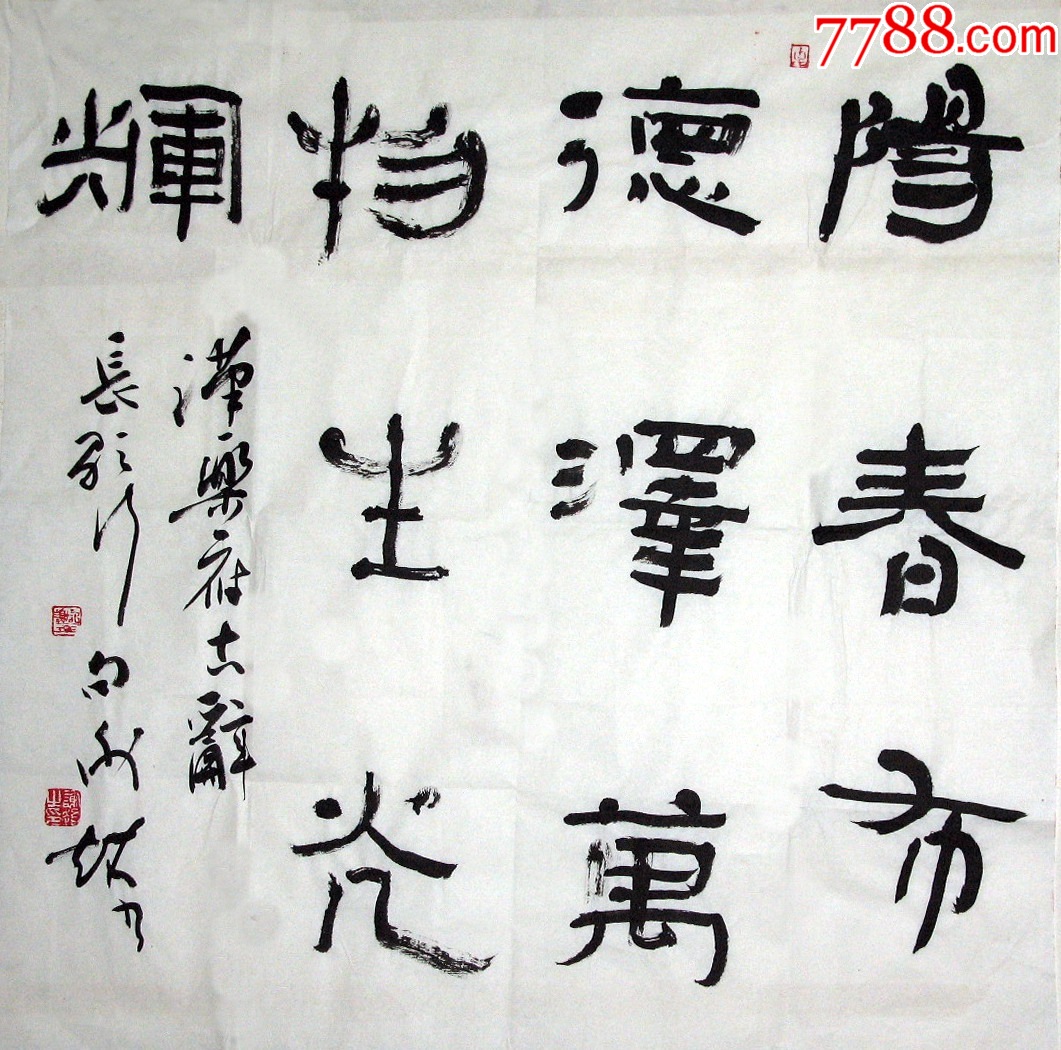 陽春布
德澤萬
物生光
輝
漢樂府古辭
長歌行 句
7788.com